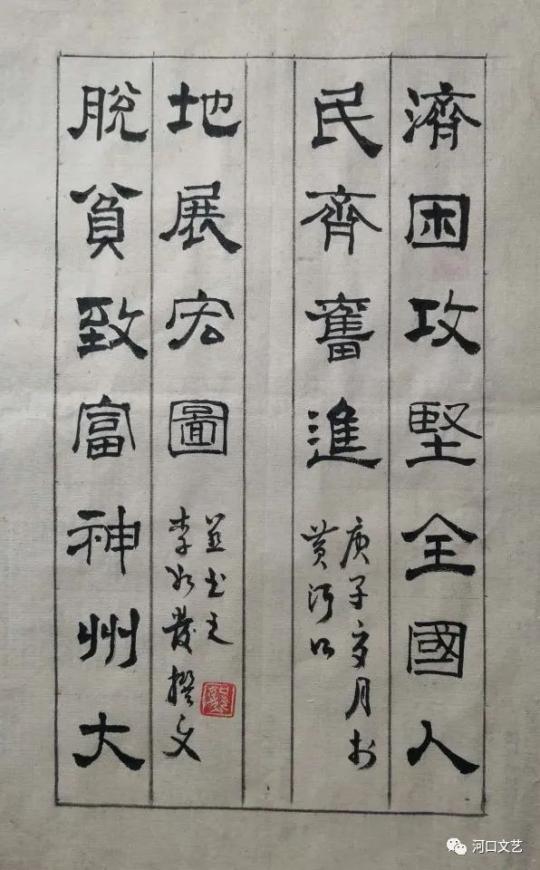 濟困攻堅全國人
民齊奮進
庚子夏月於
黄河口
脫貧致富神州大
地展宏圖
李發撰文
並书之
河口文艺